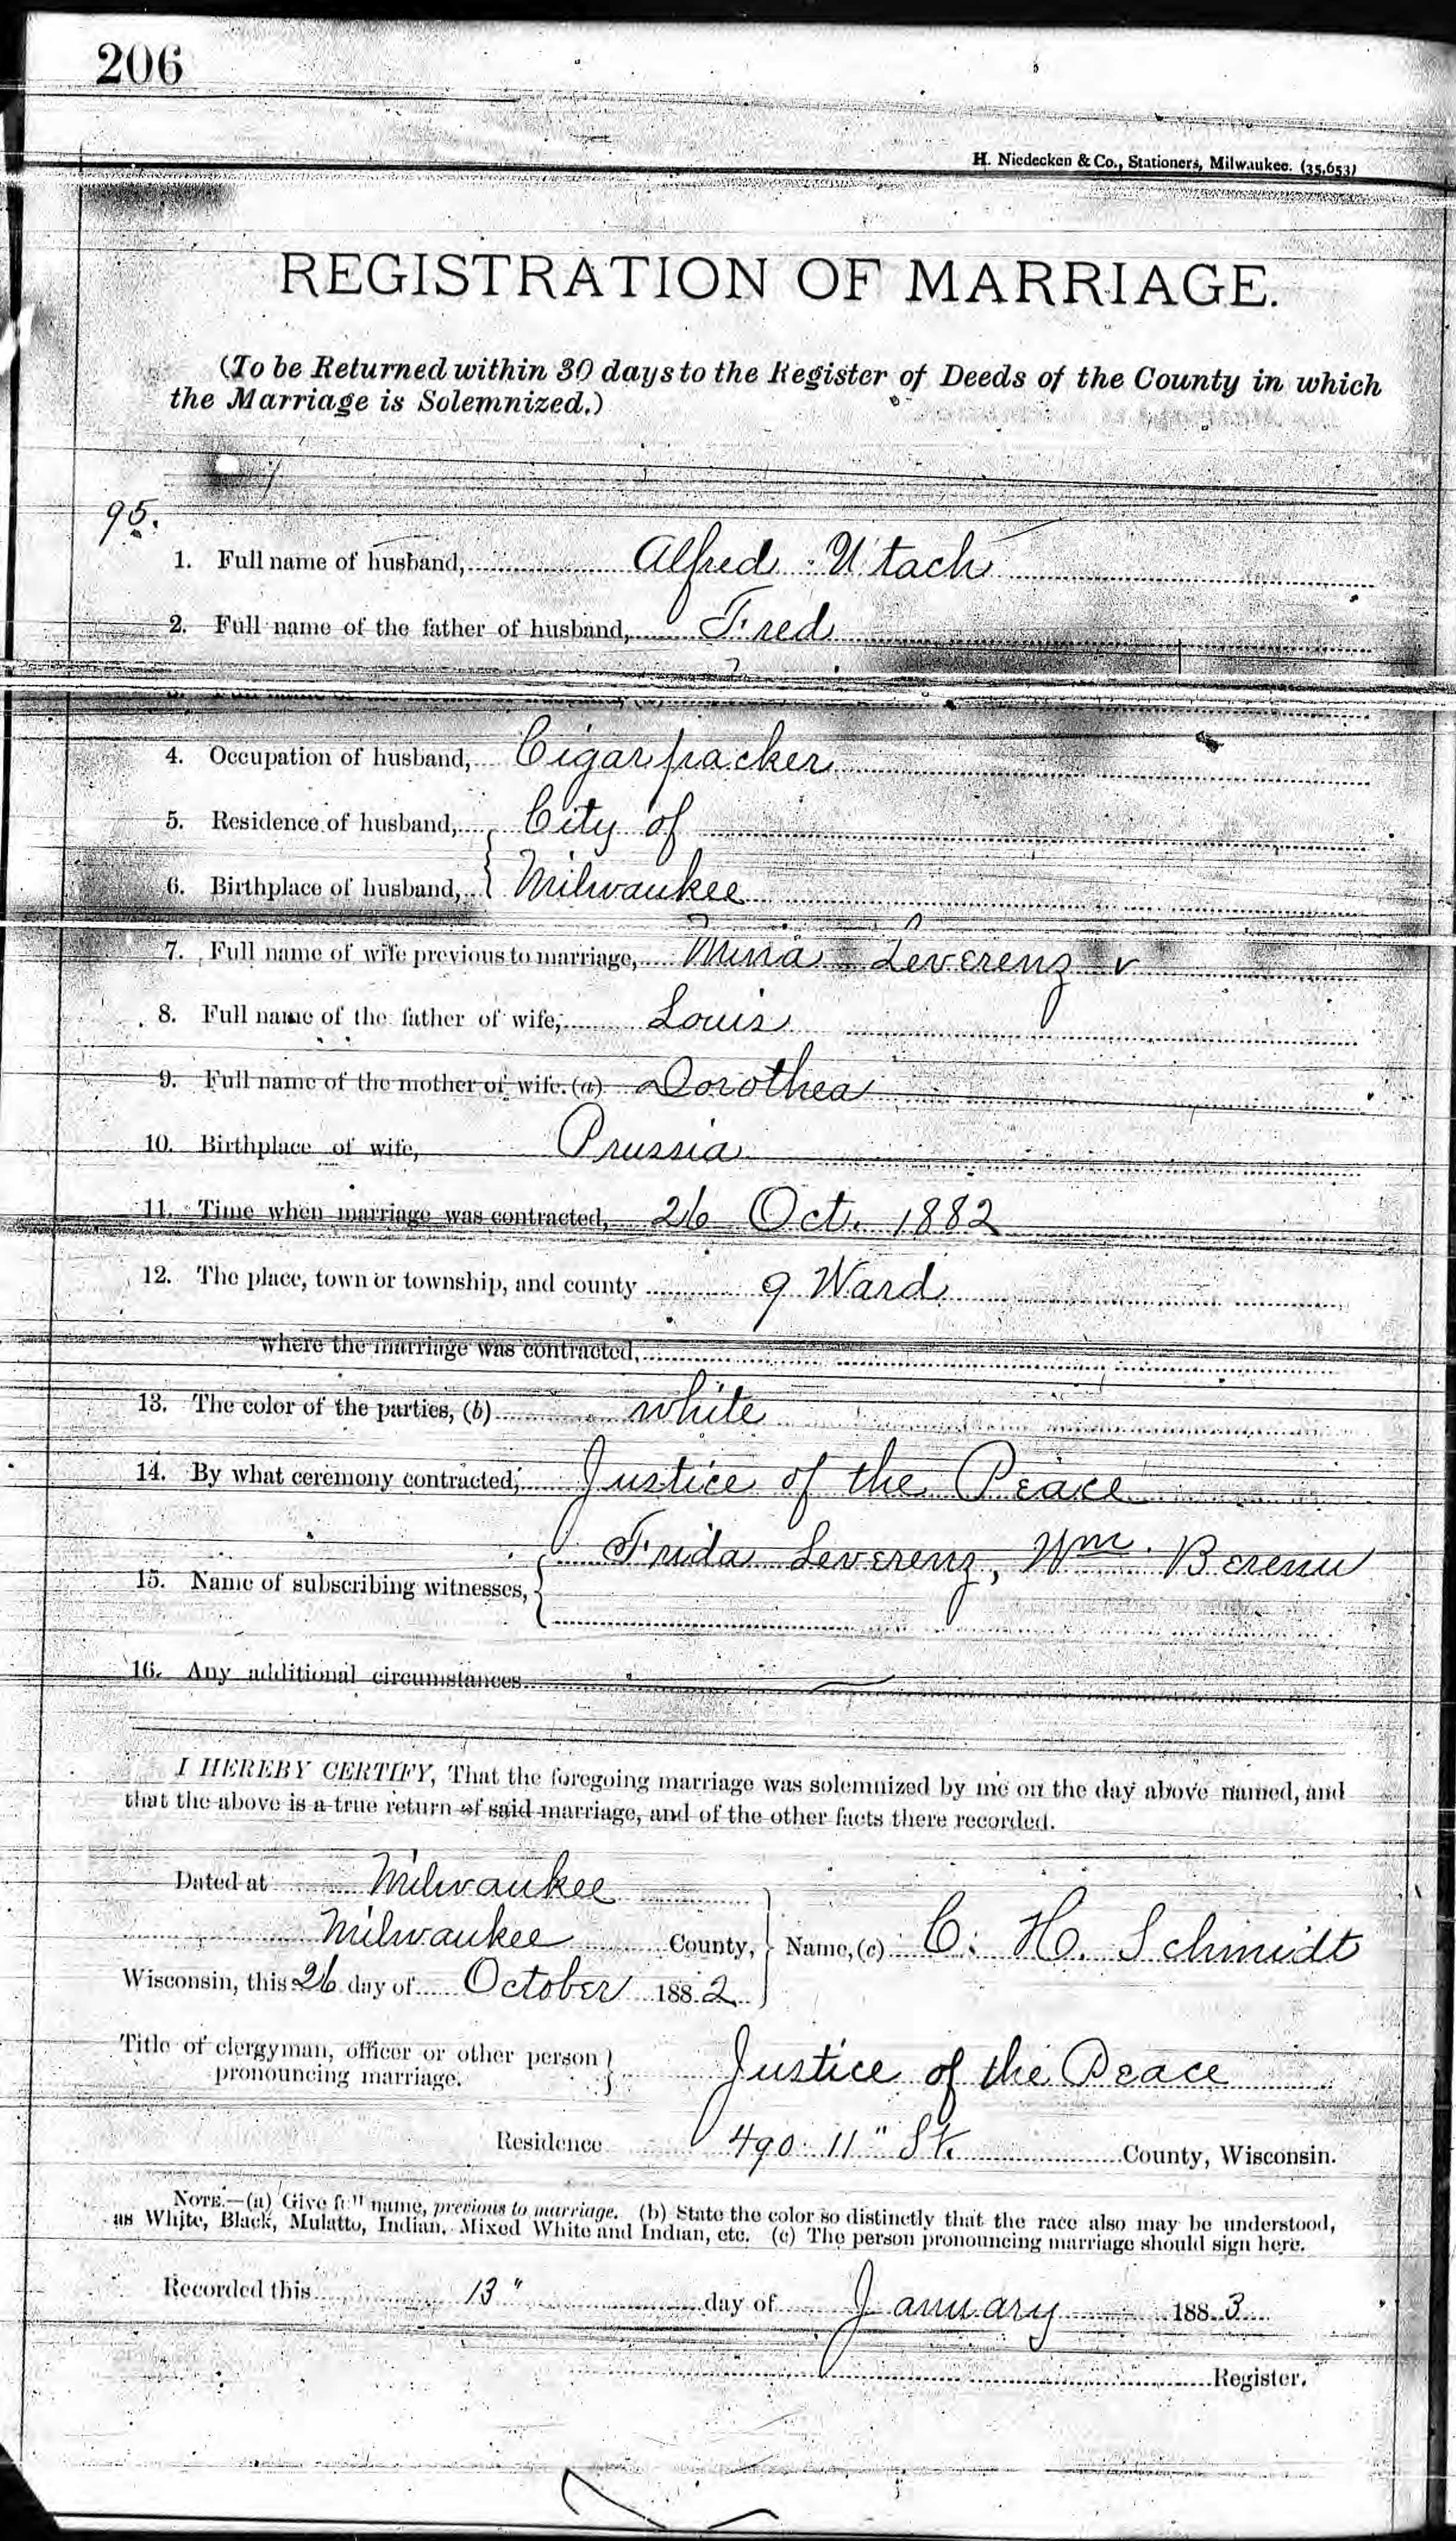 206
H. Niedecken & Co., Stationers, Milwaukee. (35,653)
REGISTRATION OF MARRIAGE.
(To be Returned within 30 days to the Register of Deeds of the County in which
the Marriage is Solemnized.)
95.
1. Full name of husband, Alfred Utach
2. Full name of the father of husband, Fred
4. Occupation of husband, Cigarpacker
5. Residence of husband, City of
6. Birthplace of husband, Milwaukee
7. Full name of wife previous to marriage, Mina Leverenz
8. Full name of the father of wife, Louis
9. Full name of the mother of wife. (a) Dorothea
10. Birthplace of wife, Prussia
11. Time when marriage was contracted, 26 Oct. 1882
12. The place, town or township, and county 9 Ward
where the marriage was contracted,
13. The color of the parties, (b) white
14. By what ceremony contracted, Justice of the Peace
Frida Leverenz, Wm.
15. Name of subscribing witnesses,
16. Any additional circumstances
I HEREBY CERTIFY, That the foregoing marriage was solemnized by me on the day above named, and
that the above is a true return of said marriage, and of the other facts there recorded.
Dated at Milwaukee
Milwaukee County, Name, (c) C. H. Schmidt
Wisconsin, this 26 day of October 1882
Title of clergyman, officer or other person Justice of the Peace
pronouncing marriage.
Residence 490 11" St. County, Wisconsin.
NOTE.—(a) Give full name, previous to marriage. (b) State the color so distinctly that the race also may be understood,
as White, Black, Mulatto, Indian, Mixed White and Indian, etc. (c) The person pronouncing marriage should sign here.
Recorded this 13" day of January 1883
Register.